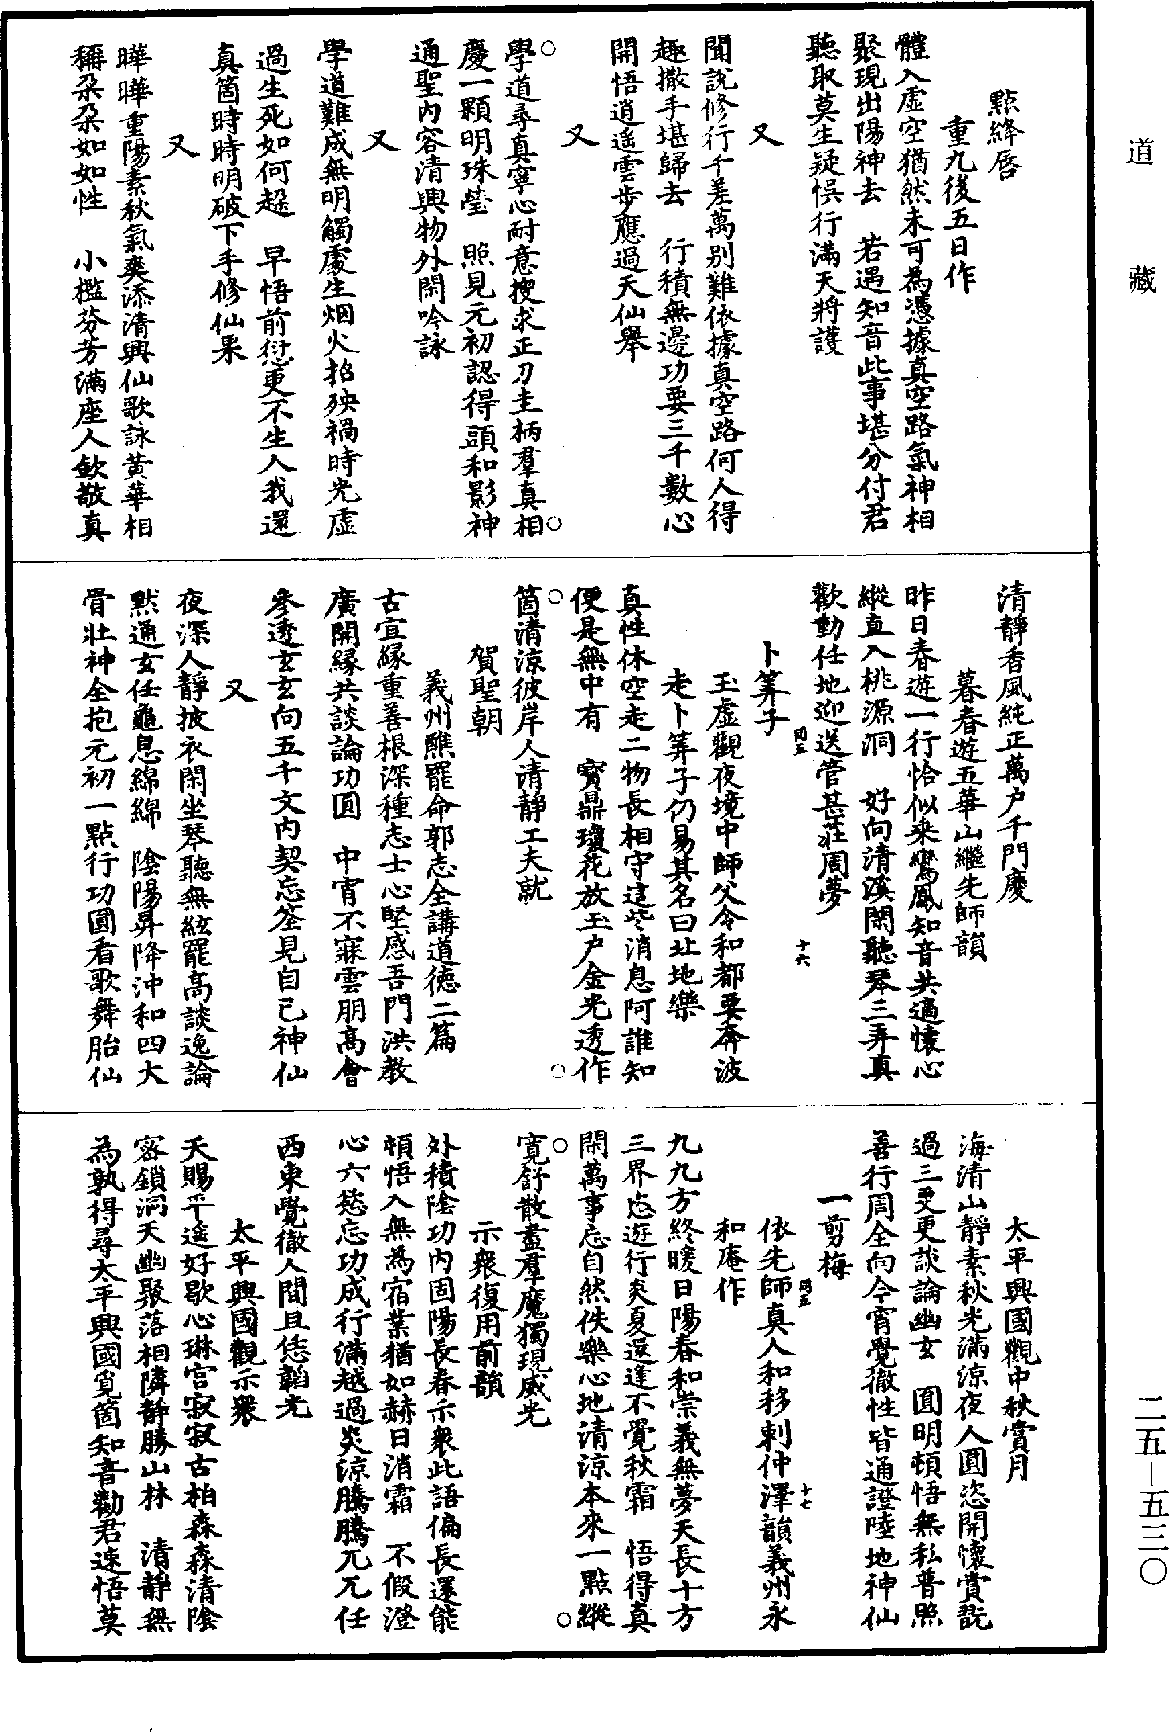 道藏
二五—五三〇
點絳唇
重九後五日作
體入虛空猶然未可為憑據真空路氣神相
聚現出陽神去　若遇知音此事堪分付君
聽取莫生疑悞行滿天將護
又
聞說修行千差萬别難依據真空路何人得
趣撒手堪歸去　行積無邊功要三千數心
開悟逍遙雲步應過天仙舉
又
學道尋真寧心耐意搜求正刀圭柄羣真相
慶一顆明珠瑩　照見元初認得頭和影神
通聖内容清興物外閑吟詠
又
學道難成無明觸處生烟火招殃禍時光虛
過生死如何趓　早悟前愆更不生人我還
真箇時時明破下手修仙果
又
曄曄重陽素秋氣爽添清興仙歌詠黄華相
稱朶朶如如性　小檻芬芳滿座人欽敬真
清靜香風純正萬户千門慶
暮春遊五華山繼先師韻
昨日春遊一行恰似乘鸞鳳知音共適懷心
縱直入桃源洞　好向清溪閑聽琴三弄真
歡動任地迎送管甚莊周夢
卜筭子　同五　十六
玉虛觀夜境中師父令和都要奔波
走卜筭子仍易其名曰北地樂
真性休空走二物長相守這些消息阿誰知
便是無中有　寶鼎瓊花放玉户金光透作
箇清涼彼岸人清靜工夫就
賀聖朝
義州醮罷命郭志全講道德二篇
古宜緣重善根深種志士心堅感吾門洪教
廣開緣共談論功圓　中宵不寐雲朋高會
參透玄玄向五千文内契忘筌見自己神仙
又
夜深人靜披衣閑坐琴聽無絃罷高談逸論
點通玄任龜息綿綿　陰陽昇降沖和四大
骨壯神全抱元初一點行功圓看歌舞胎仙
太平興國觀中秋賞月
海清山靜素秋光滿涼夜人圓恣開懷賞翫
過三更更談論幽玄　圓明頓悟無私普照
善行周全向今宵覺徹性皆通證陸地神仙
一剪梅　同五　十七
依先師真人和移剌仲澤韻義州永
和庵作
九九方終暖日陽春和崇義無夢天長十方
三界恣遊行炎夏還逢不覺秋霜　悟得真
閑萬事忘自然佚樂心地清涼本來一點縱
寬舒散盡羣魔獨現威光
示衆復用前韻
外積陰功内固陽長春示衆此語偏長還能
頓悟入無為宿業猶如赫日消霜　不假澄
心六慾忘功成行滿越過炎涼騰騰兀兀任
西東覺徹人間且恁韜光
太平興國觀示衆
天賜平遙好歇心琳宫寂寂古柏森森清陰
密鎖洞天幽聚落相隣靜勝山林　清靜無
為孰得尋太平興國覓箇知音勸君速悟莫